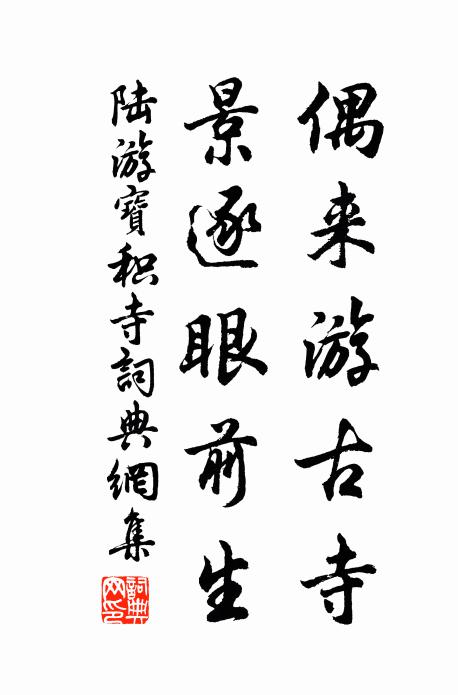 偶来游古寺
景逐眼前生
陆游寶积寺詞典網集
詞典网印